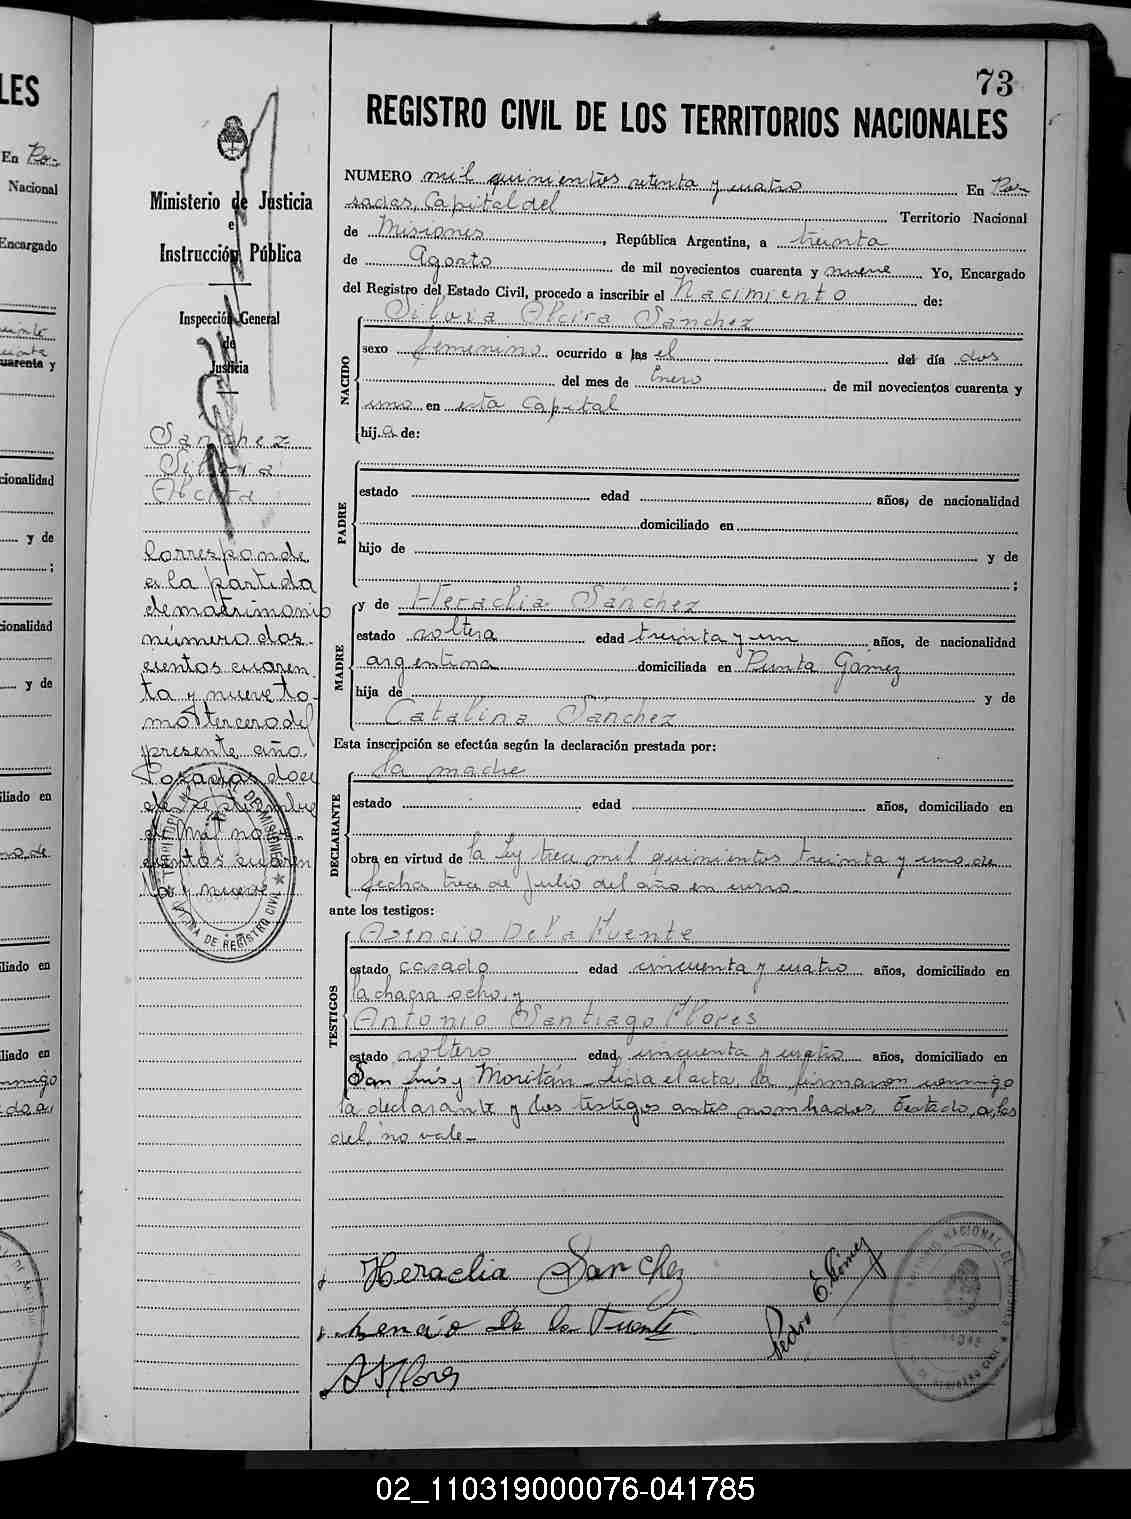 73
REGISTRO CIVIL DE LOS TERRITORIOS NACIONALES
Ministerio de Justicia
e
Instrucción Pública
Inspección General
de
Justicia
Sanchez
Silvera
Alcira
Corresponde
a la partida
de matrimonio
número dos-
cientos cuaren
ta y nueve to-
mo tercero del
presente año.
Posadas doce
de setiembre
de mil nove-
cientos cuaren
ta y nueve
NUMERO mil quinientos setenta y cuatro En Po-
sadas, Capital del Territorio Nacional
de Misiones, República Argentina, a treinta
de Agosto de mil novecientos cuarenta y nueve Yo, Encargado
del Registro del Estado Civil, procedo a inscribir el Nacimiento de:
NACIDO
Alcira Sanchez
sexo femenino ocurrido a las el del día dos
del mes de Enero de mil novecientos cuarenta y
uno en esta Capital
hija de:
PADRE
estado edad años, de nacionalidad
domiciliado en
hijo de y de
;
MADRE
y de Heraclia Sánchez
estado soltera edad treinta y un años, de nacionalidad
argentina domiciliada en Punta Gómez
hija de y de
Catalina Sanchez
Esta inscripción se efectúa según la declaración prestada por:
DECLARANTE
la madre
estado edad años, domiciliado en
obra en virtud de la Ley trece mil quinientos treinta y uno de
fecha trece de Julio del año en curso
ante los testigos:
TESTIGOS
Asencio De la Fuente
estado casado edad cincuenta y cuatro años, domiciliado en
la chacra ocho, y
Antonio Santiago Flores
estado soltero edad cincuenta y cuatro años, domiciliado en
San Luis y Moritán. Leida el acta, la firmaron conmigo
la declarante y los testigos antes nombrados. Testado, a, las
del, no vale-
Heraclia Sanchez
Asencio de la Fuente
A S Flores
Pedro E. Gómez
02_110319000076-041785